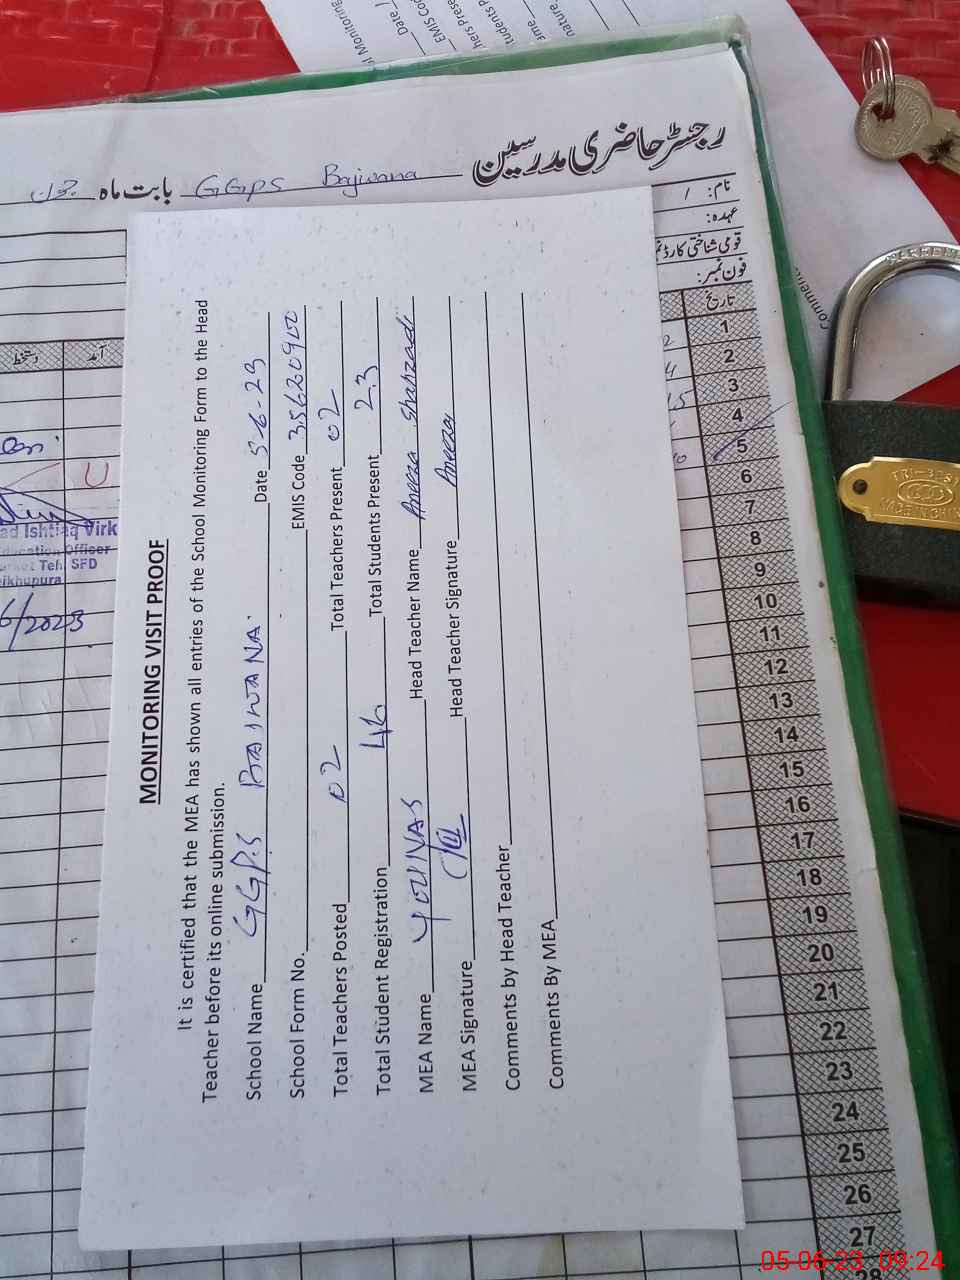 رجسٹر حاضری مدرسین
GGPS Bajwana بابت ماہ جون
نام:
عہدہ:
قومی شناختی کارڈ نمبر
فون نمبر:
تاریخ
آمد
دستخط
1
2
3
4
5
6
7
8
9
10
11
12
13
14
15
16
17
18
19
20
21
22
23
24
25
26
27
28
MONITORING VISIT PROOF
It is certified that the MEA has shown all entries of the School Monitoring Form to the Head
Teacher before its online submission.
School Name GGPS BAJWANA. Date 5-6-23
School Form No. EMIS Code 35620900
Total Teachers Posted 02 Total Teachers Present 02
Total Student Registration 46 Total Students Present 23
MEA Name YOUNAS Head Teacher Name Aneeza Shahzadi
MEA Signature Head Teacher Signature Aneeza
Comments by Head Teacher
Comments By MEA
Ishtiaq Virk
Education Officer
Teh. SFD
6/2023
EMIS Code
TRI-CIRCLE
MADE IN CHINA
05-06-23 09:24